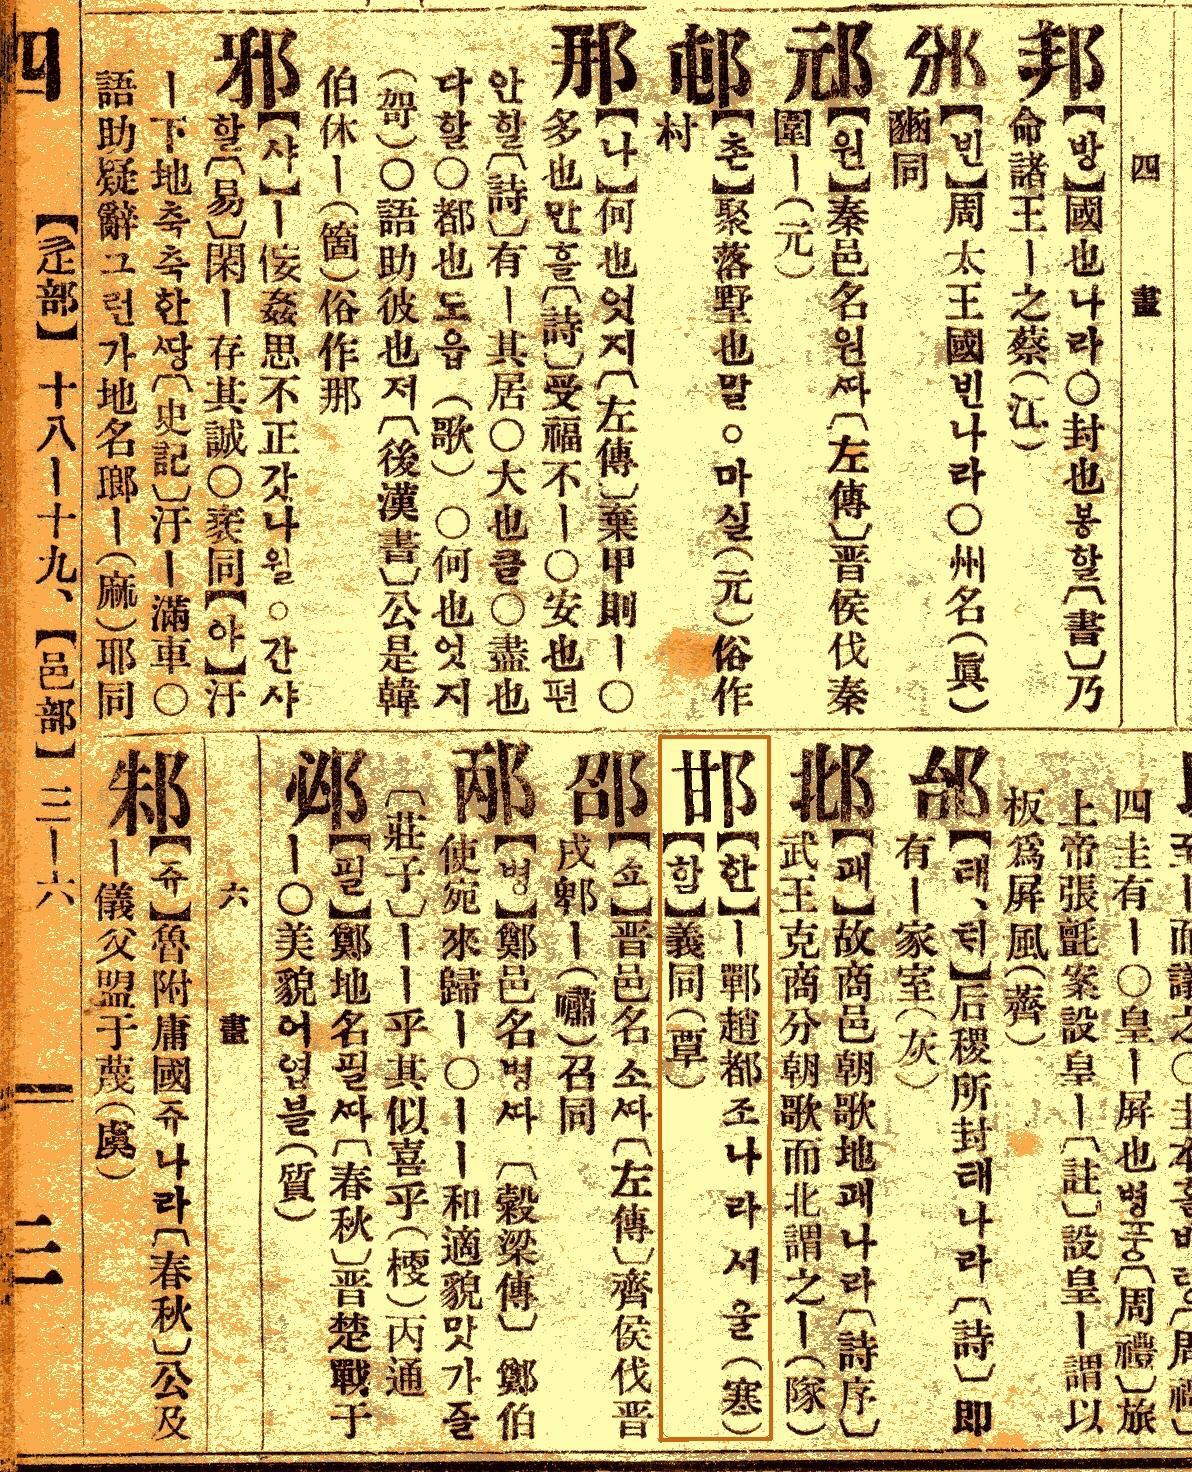 四畫
邦【방】國也나라○封也봉할〔書〕乃
命諸王ㅣ之蔡(江)
邠【빈】周太王國빈나라○州名(眞)
豳同
邧【원】秦邑名원ᄯᅡ〔左傳〕晋侯伐秦
圍ㅣ(元)
邨【촌】聚落墅也말。마실(元)俗作
村
那【나】何也엇지〔左傳〕棄甲則ㅣ○
多也만흘〔詩〕受福不ㅣ○安也편
안할〔詩〕有ㅣ其居○大也클○盡也
다할○都也도읍(歌)○何也엇지
(哿)○語助彼也저〔後漢書〕公是韓
伯休ㅣ(箇)俗作那
邪【샤】ㅣ侫姦思不正갓나월。간샤
할〔易〕閑ㅣ存其誠○衺同【야】汙
ㅣ下地축축한ᄯᅡᆼ〔史記〕汙ㅣ滿車○
語助疑辭그런가地名瑯ㅣ(麻)耶同
四
【辵部】十八ㅣ十九、【邑部】三ㅣ六
至ㅣ而議之
四圭有ㅣ○皇ㅣ屛也병풍〔周禮〕旅
上帝張氈案設皇ㅣ〔註〕設皇ㅣ謂以
板爲屛風(薺)
邰【태、터】后稷所封태나라〔詩〕卽
有ㅣ家室(灰)
邶【패】故商邑朝歌地패나라〔詩序〕
武王克商分朝歌而北謂之ㅣ(隊)
邯【한】ㅣ鄲趙都조나라셔울(寒)
【함】義同(覃)
邵【쇼】晋邑名소ᄯᅡ〔左傳〕齊侯伐晋
戍郫ㅣ(嘯)召同
邴【병】鄭邑名병ᄯᅡ〔穀梁傳〕鄭伯
使宛來歸ㅣ○ㅣㅣ和適貌맛가즐
〔莊子〕ㅣㅣ乎其似喜乎(梗)丙通
邲【필】鄭地名필ᄯᅡ〔春秋〕晋楚戰于
ㅣ○美貌어엽블(質)
六畫
邾【쥬】魯附庸國쥬나라〔春秋〕公及
ㅣ儀父盟于蔑(虞)